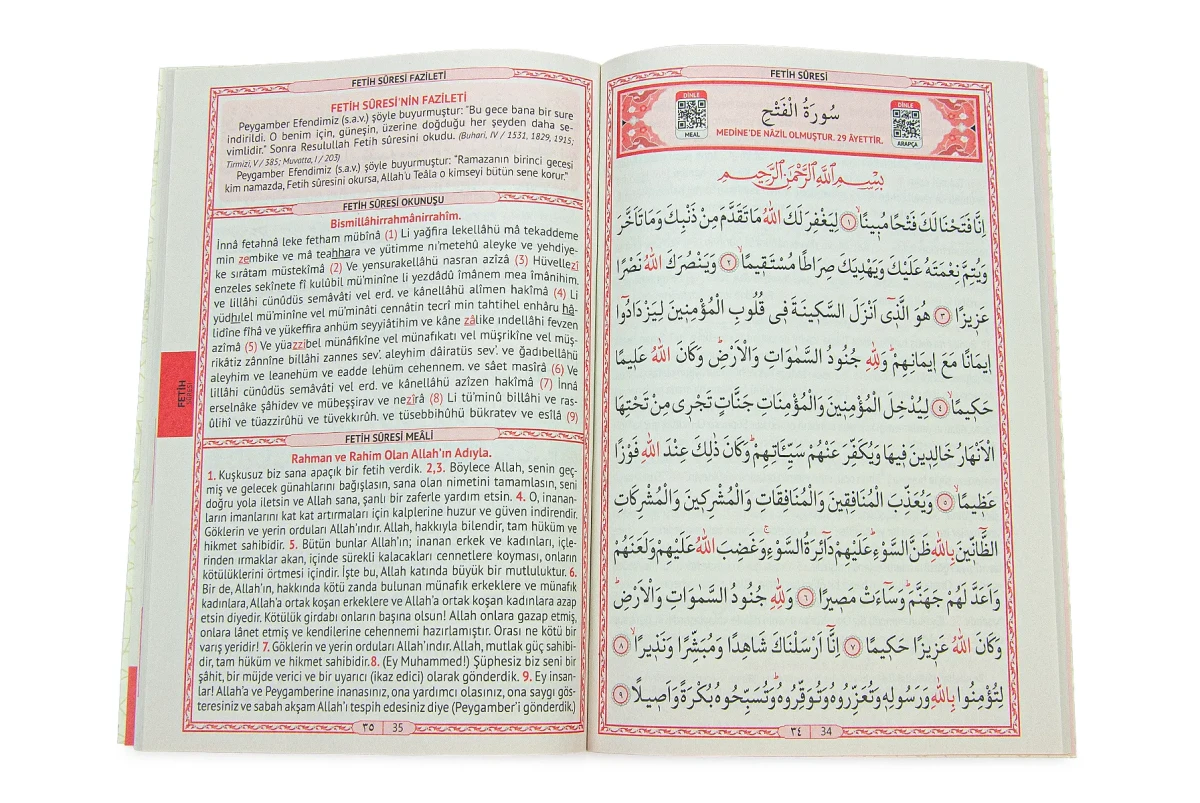 FETİH SÛRESİ
سُورَةُ الْفَتْحِ
DİNLE
MEAL
DİNLE
ARAPÇA
MEDİNE'DE NÂZİL OLMUŞTUR. 29 ÂYETTİR.
بِسْمِ اللّٰهِ الرَّحْمٰنِ الرَّحِيمِ
اِنَّا فَتَحْنَا لَكَ فَتْحًا مُبٖينًاۙ ﴿١﴾ لِيَغْفِرَ لَكَ اللّٰهُ مَا تَقَدَّمَ مِنْ ذَنْبِكَ وَمَا تَاَخَّرَ
وَيُتِمَّ نِعْمَتَهُ عَلَيْكَ وَيَهْدِيَكَ صِرَاطًا مُسْتَقٖيمًاۙ ﴿٢﴾ وَيَنْصُرَكَ اللّٰهُ نَصْرًا
عَزٖيزًا ﴿٣﴾ هُوَ الَّذٖٓى اَنْزَلَ السَّكٖينَةَ فٖى قُلُوبِ الْمُؤْمِنٖينَ لِيَزْدَادُٓوا
اٖيمَانًا مَعَ اٖيمَانِهِمْؕ وَلِلّٰهِ جُنُودُ السَّمٰوَاتِ وَالْاَرْضِؕ وَكَانَ اللّٰهُ عَلٖيمًا
حَكٖيمًاۙ ﴿٤﴾ لِيُدْخِلَ الْمُؤْمِنٖينَ وَالْمُؤْمِنَاتِ جَنَّاتٍ تَجْرٖى مِنْ تَحْتِهَا
الْاَنْهَارُ خَالِدٖينَ فٖيهَا وَيُكَفِّرَ عَنْهُمْ سَيِّـَٔاتِهِمْؕ وَكَانَ ذٰلِكَ عِنْدَ اللّٰهِ فَوْزًا
عَظٖيمًاۙ ﴿٥﴾ وَيُعَذِّبَ الْمُنَافِقٖينَ وَالْمُنَافِقَاتِ وَالْمُشْرِكٖينَ وَالْمُشْرِكَاتِ
الظَّٓانّٖينَ بِاللّٰهِ ظَنَّ السَّوْءِؕ عَلَيْهِمْ دَٓائِرَةُ السَّوْءِۚ وَغَضِبَ اللّٰهُ عَلَيْهِمْ وَلَعَنَهُمْ
وَاَعَدَّ لَهُمْ جَهَنَّمَؕ وَسَٓاءَتْ مَصٖيرًا ﴿٦﴾ وَلِلّٰهِ جُنُودُ السَّمٰوَاتِ وَالْاَرْضِؕ
وَكَانَ اللّٰهُ عَزٖيزًا حَكٖيمًا ﴿٧﴾ اِنَّٓا اَرْسَلْنَاكَ شَاهِدًا وَمُبَشِّرًا وَنَذٖيرًاۙ ﴿٨﴾
لِتُؤْمِنُوا بِاللّٰهِ وَرَسُولِهٖ وَتُعَزِّرُوهُ وَتُوَقِّرُوهُؕ وَتُسَبِّحُوهُ بُكْرَةً وَاَصٖيلًا ﴿٩﴾
٣٤ 34
FETİH SÛRESİ FAZİLETİ
FETİH SÛRESİ'NİN FAZİLETİ
Peygamber Efendimiz (s.a.v.) şöyle buyurmuştur: "Bu gece bana bir sure
indirildi. O benim için, güneşin, üzerine doğduğu her şeyden daha se-
vimlidir." Sonra Resulullah Fetih sûresini okudu. (Buhari, IV / 1531, 1829, 1915;
Tirmizi, V / 385; Muvatta, I / 203)
Peygamber Efendimiz (s.a.v.) şöyle buyurmuştur: "Ramazanın birinci gecesi
kim namazda, Fetih sûresini okursa, Allah'u Teâla o kimseyi bütün sene korur."
FETİH SÛRESİ OKUNUŞU
Bismillâhirrahmânirrahîm.
İnnâ fetahnâ leke fetham mübînâ (1) Li yağfira lekellâhü mâ tekaddeme
min zembike ve mâ teahhara ve yütimme nı'metehû aleyke ve yehdiye-
ke sırâtam müstekîmâ (2) Ve yensurakellâhü nasran azîzâ (3) Hüvellezî
enzeles sekînete fî kulûbil mü'minîne li yezdâdû îmânem mea îmânihim.
ve lillâhi cünûdüs semâvâti vel erd. ve kânellâhü alîmen hakîmâ (4) Li
yüdhılel mü'minîne vel mü'minâti cennâtin tecrî min tahtihel enhâru hâ-
lidîne fîhâ ve yükeffira anhüm seyyiâtihim ve kâne zâlike ındellâhi fevzen
azîmâ (5) Ve yüazzibel münâfikîne vel münafıkatı vel müşrikîne vel müş-
rikâtiz zânnîne billâhi zannes sev'. aleyhim dâiratüs sev'. ve ğadıbellâhü
aleyhim ve leanehüm ve eadde lehüm cehennem. ve sâet masîrâ (6) Ve
lillâhi cünûdüs semâvâti vel erd. ve kânellâhü azîzen hakîmâ (7) İnnâ
erselnâke şâhidev ve mübeşşirav ve nezîrâ (8) Li tü'minû billâhi ve ras-
ûlihî ve tüazzirûhü ve tüvekkırûh. ve tüsebbihûhü bükratev ve esîlâ (9)
FETİH SÛRESİ
FETİH SÛRESİ MEÂLİ
Rahman ve Rahim Olan Allah'ın Adıyla.
1. Kuşkusuz biz sana apaçık bir fetih verdik. 2,3. Böylece Allah, senin geç-
miş ve gelecek günahlarını bağışlasın, sana olan nimetini tamamlasın, seni
doğru yola iletsin ve Allah sana, şanlı bir zaferle yardım etsin. 4. O, inanan-
ların imanlarını kat kat artırmaları için kalplerine huzur ve güven indirendir.
Göklerin ve yerin orduları Allah'ındır. Allah, hakkıyla bilendir, tam hüküm ve
hikmet sahibidir. 5. Bütün bunlar Allah'ın; inanan erkek ve kadınları, içle-
rinden ırmaklar akan, içinde sürekli kalacakları cennetlere koyması, onların
kötülüklerini örtmesi içindir. İşte bu, Allah katında büyük bir mutluluktur. 6.
Bir de, Allah'ın, hakkında kötü zanda bulunan münafık erkeklere ve münafık
kadınlara, Allah'a ortak koşan erkeklere ve Allah'a ortak koşan kadınlara azap
etsin diyedir. Kötülük girdabı onların başına olsun! Allah onlara gazap etmiş,
onlara lânet etmiş ve kendilerine cehennemi hazırlamıştır. Orası ne kötü bir
varış yeridir! 7. Göklerin ve yerin orduları Allah'ındır. Allah, mutlak güç sahibi-
dir, tam hüküm ve hikmet sahibidir. 8. (Ey Muhammed!) Şüphesiz biz seni bir
şahit, bir müjde verici ve bir uyarıcı (ikaz edici) olarak gönderdik. 9. Ey insan-
lar! Allah'a ve Peygamberine inanasınız, ona yardımcı olasınız, ona saygı gös-
teresiniz ve sabah akşam Allah'ı tespih edesiniz diye (Peygamber'i gönderdik.)
٣٥ 35